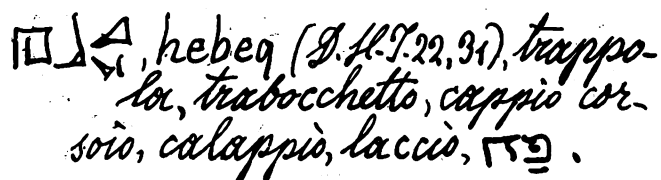 , hebeq (D.H.J.22,31), trappo-
la, trabocchetto, cappio cor-
soio, calappio, laccio, .